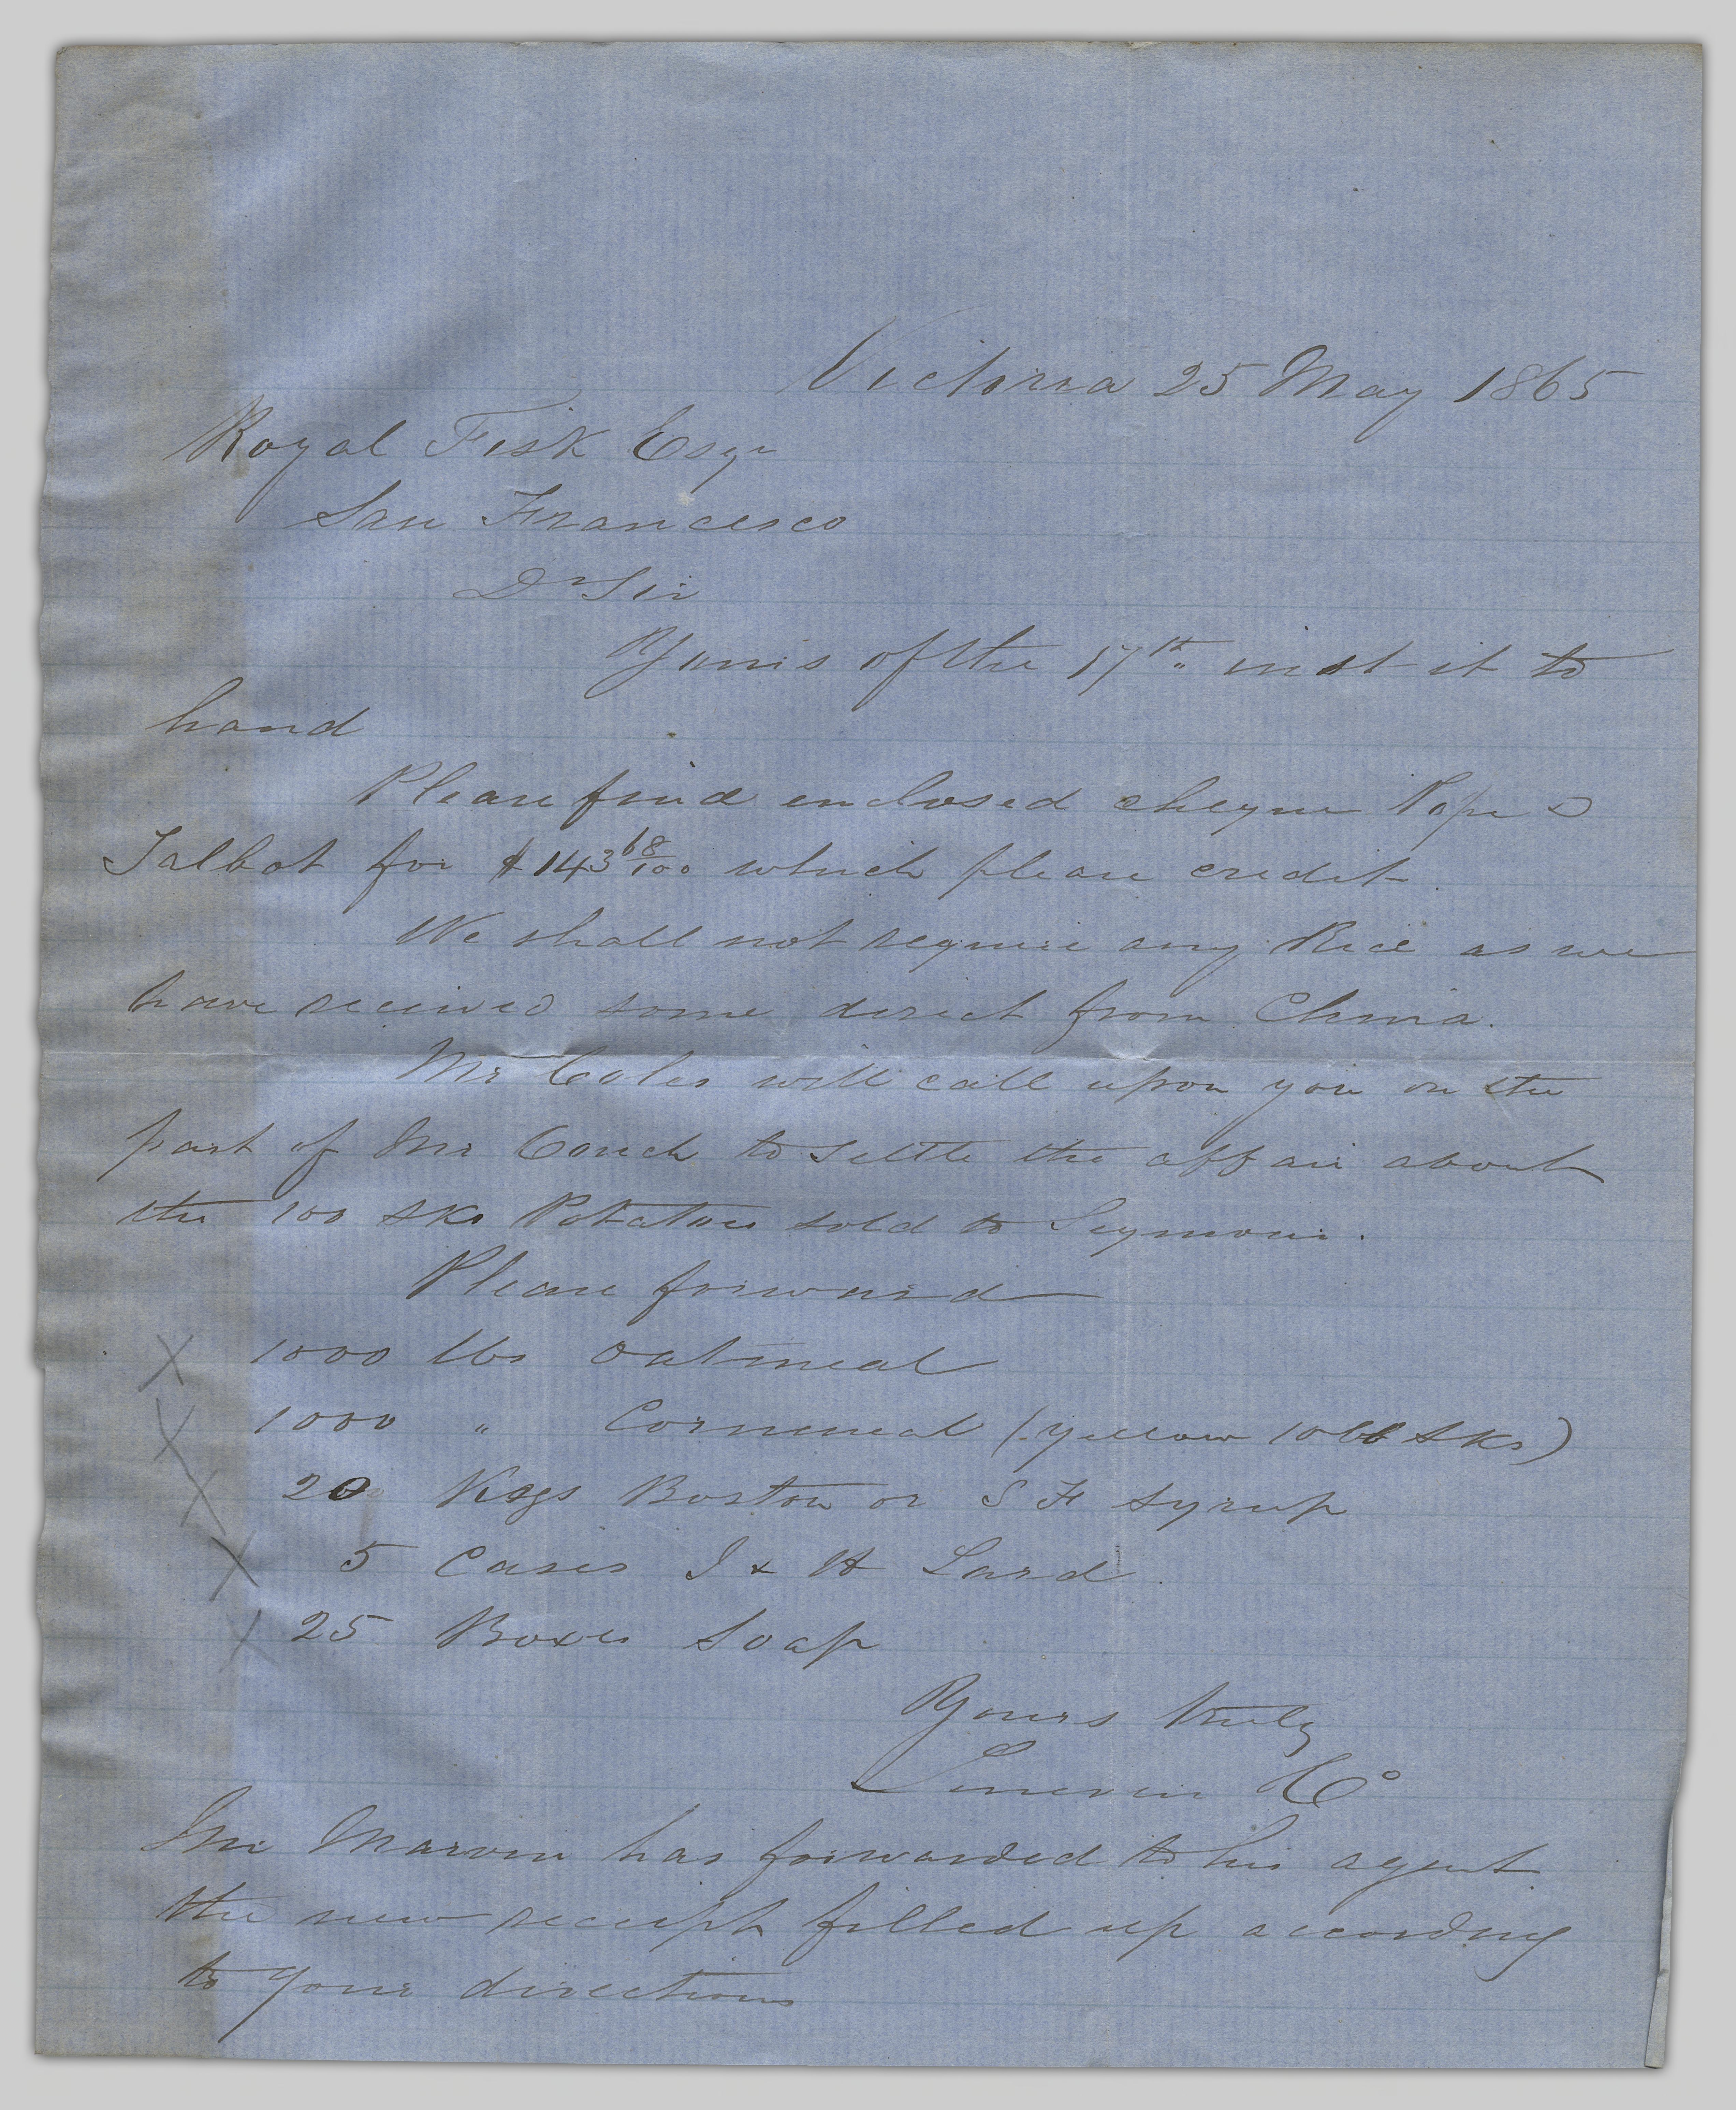 Victoria 25 May 1865
Royal Fisk Esqr
San Francisco
Dr Sir
Yours of the 17th inst it to
hand
Please find enclosed cheque Pope &
Talbot for $143 68/100 which please credit.
We shall not require any Rice as we
have received some direct from China.
Mr Coles will call upon you on the
part of Mr Couch to settle the affair about
the 100 sks Potatoes sold to Seymour.
Please forward
X 1000 lbs Oatmeal
X 1000 " Cornmeal (yellow 10lb sks)
X 20 Kegs Boston or S F Syrup
X 5 Cases J & H Lard.
X 25 Boxes Soap
Yours truly
& Co
Mr Marvin has forwarded to his agent
the new receipt filled up according
to your directions